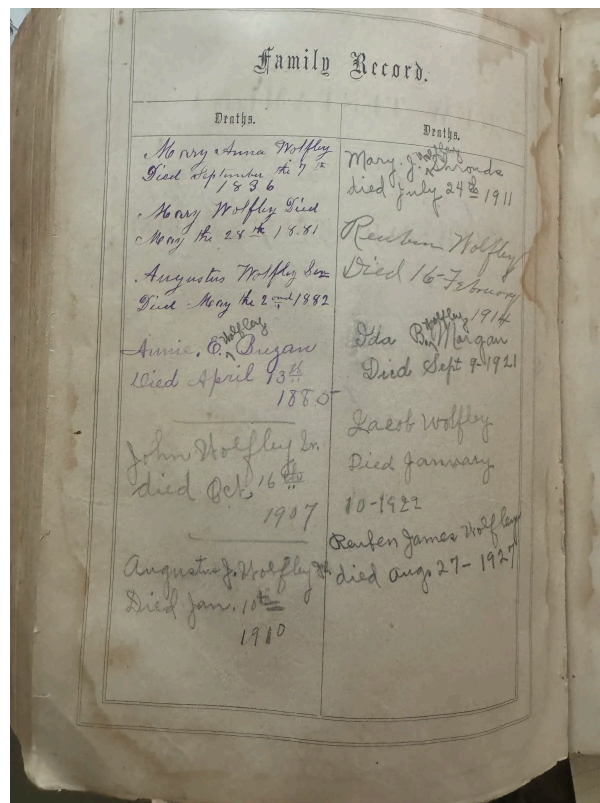 Family Record.
Deaths.
Mary Anna Wolfley
Died September the 7th
1836
Mary Wolfley Died
May the 28th 1881
Augustus Wolfley Sen
Died May the 2ond 1882
Wolfley
Annie. E. Dugan
Died April 13th
1885
John Wolfley Sr.
died Oct. 16th
1907
Augustus J. Wolfley Jr.
Died Jan. 10th
1910
Deaths.
Wolfley
Mary. J. Shronds
died July 24th 1911
Reuben Wolfley
Died 16-February
1914
Wolfley
Ida B. Morgan
Died Sept 9-1921
Jacob Wolfley
Died January
10-1922
Reuben James Wolfley
died Aug. 27-1927